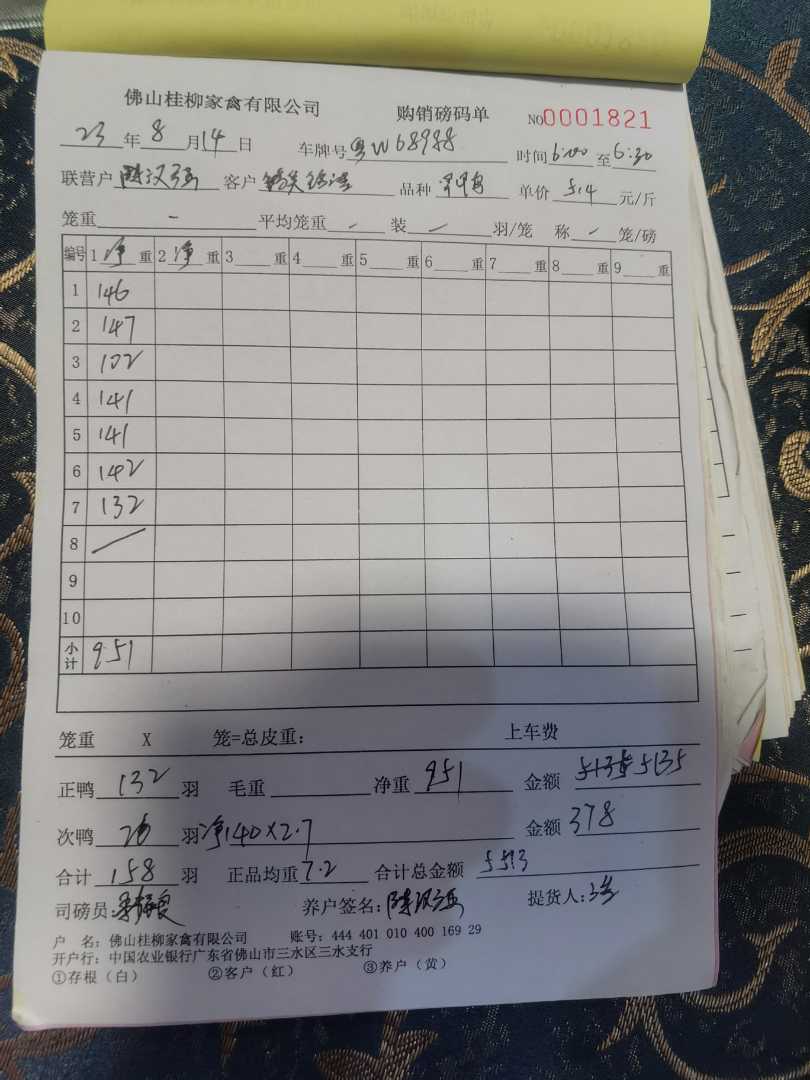 佛山桂柳家禽有限公司 购销磅码单 NO0001821
23年8月14日 车牌号粤W68988 时间6:00至6:30
联营户陈汉强 客户 品种 单价5.4元/斤
笼重 - 平均笼重 - 装 - 羽/笼 称 - 笼/磅
编号 1净重 2净重 3重 4重 5重 6重 7重 8重 9重
1 146
2 147
3 102
4 141
5 141
6 142
7 132
8 /
9
10
小计 951
笼重 X 笼=总皮重: 上车费
正鸭132羽 毛重 净重951 金额 5135
次鸭26羽净140×2.7 金额378
合计158羽 正品均重7.2 合计总金额5513
司磅员: 养户签名:陈汉强 提货人:
户 名:佛山桂柳家禽有限公司 账号:444 401 010 400 169 29
开户行:中国农业银行广东省佛山市三水区三水支行
①存根(白) ②客户(红) ③养户(黄)